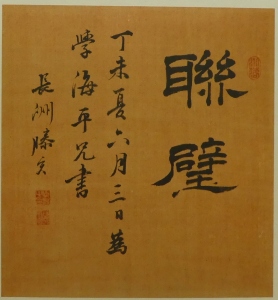 聯璧
丁未夏六月三日為
學海平兄書
長洲滕實